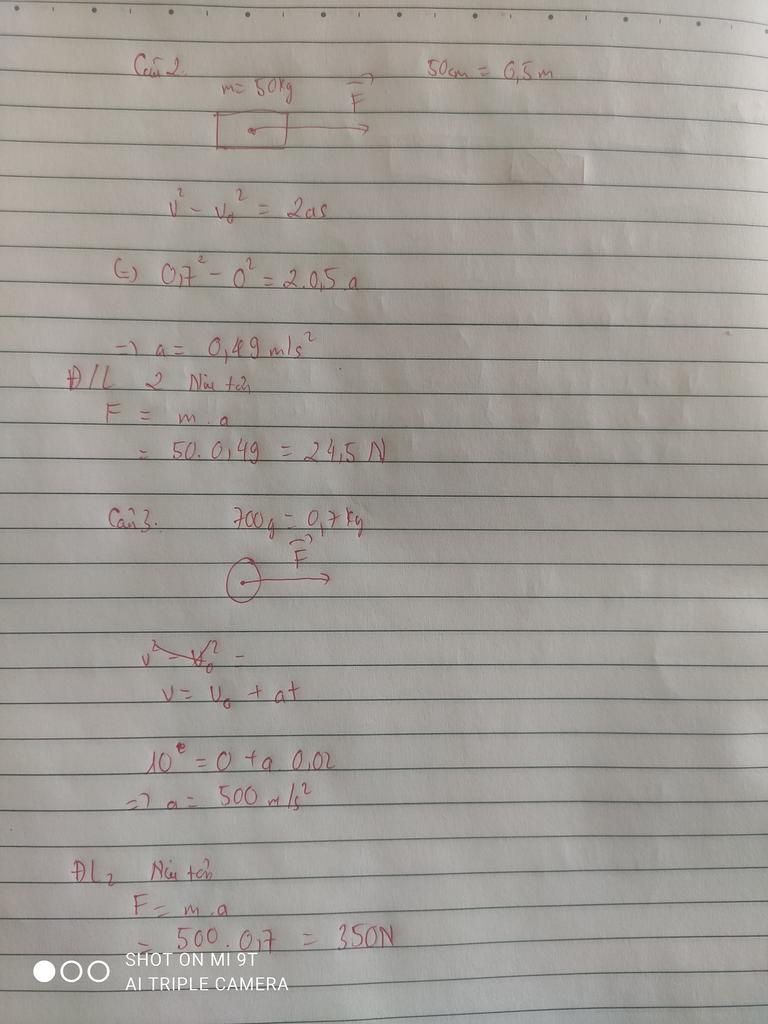 Câu 2.
50cm = 0,5m
m = 50kg
F
v² - v₀² = 2as
(=) 0,7² - 0² = 2.0,5 a
=) a = 0,49 m/s²
Đ/L 2 Niu tơn
F = m.a
= 50. 0,49 = 24,5 N
Câu 3. 700g = 0,7kg
F
v² - v₀² =
v = v₀ + at
10 = 0 + a 0,02
=) a = 500 m/s²
ĐL₂ Niu tơn
F = m.a
= 500 . 0,7 = 350N
SHOT ON MI 9T
AI TRIPLE CAMERA